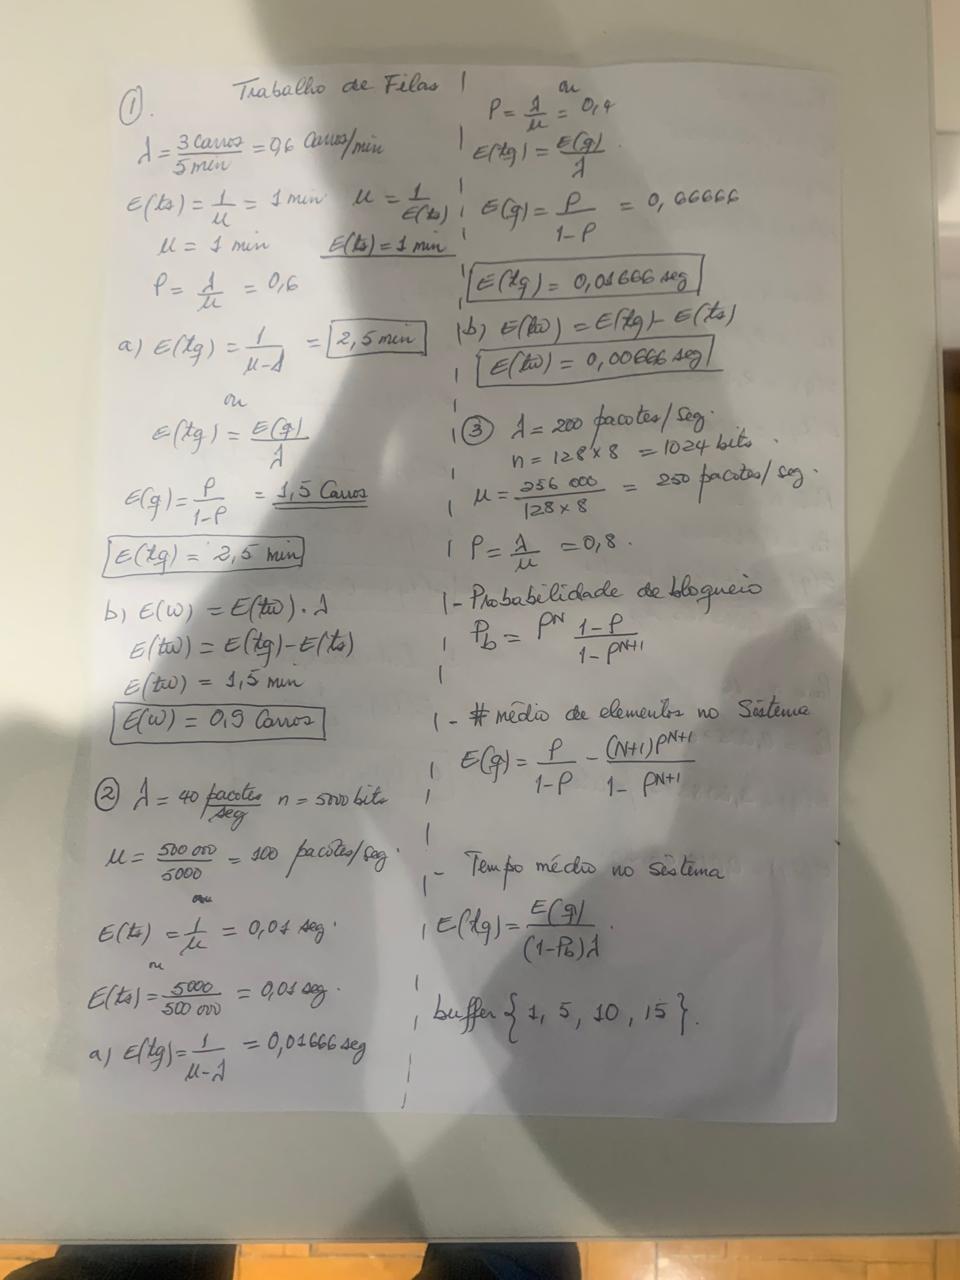 Trabalho de Filas
①.
λ = 3 Carros / 5 min = 0,6 Carros/min
E(ts) = 1/μ = 1 min μ = 1/E(ts)
μ = 1 min E(ts) = 1 min
ρ = λ/μ = 0,6
a) E(tq) = 1/(μ-λ) = 2,5 min
ou
E(tq) = E(q)/λ
E(q) = ρ/(1-ρ) = 1,5 Carros
E(tq) = 2,5 min
b) E(w) = E(tw) · λ
E(tw) = E(tq) - E(ts)
E(tw) = 1,5 min
E(w) = 0,9 Carros
② λ = 40 pacotes/seg n = 5000 bits
μ = 500 000/5000 = 100 pacotes/seg.
ou
E(ts) = 1/μ = 0,01 seg.
ou
E(ts) = 5000/500 000 = 0,01 seg.
a) E(tq) = 1/(μ-λ) = 0,01666 seg
ou
ρ = λ/μ = 0,4
E(tq) = E(q)/λ.
E(q) = ρ/(1-ρ) = 0,66666
E(tq) = 0,01666 seg
b) E(tw) = E(tq) - E(ts)
E(tw) = 0,00666 seg
③ λ = 200 pacotes/seg.
n = 128 x 8 = 1024 bits.
μ = 256 000/(128 x 8) = 250 pacotes/seg.
ρ = λ/μ = 0,8.
- Probabilidade de bloqueio
Pb = ρ^N (1-ρ)/(1-ρ^N+1)
- # médio de elementos no Sistema
E(q) = ρ/(1-ρ) - (N+1)ρ^N+1/(1-ρ^N+1)
- Tempo médio no sistema
E(tq) = E(q)/((1-Pb)λ).
buffer {1, 5, 10, 15}.